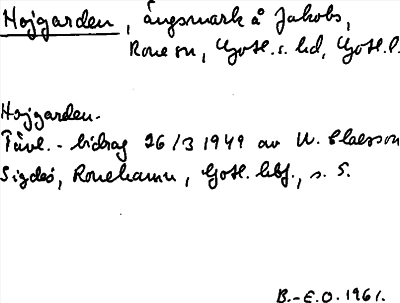 Hojgarden, ängsmark å Jakobs,
Rone sn, Gotl. s. hd, Gotl. l.
Hojgarden.
Tävl.-bidrag 26/3 1949 av U. Claesson
Sigdes, Ronehamn, Gotl. , s. 5.
B.-E.O. 1961.